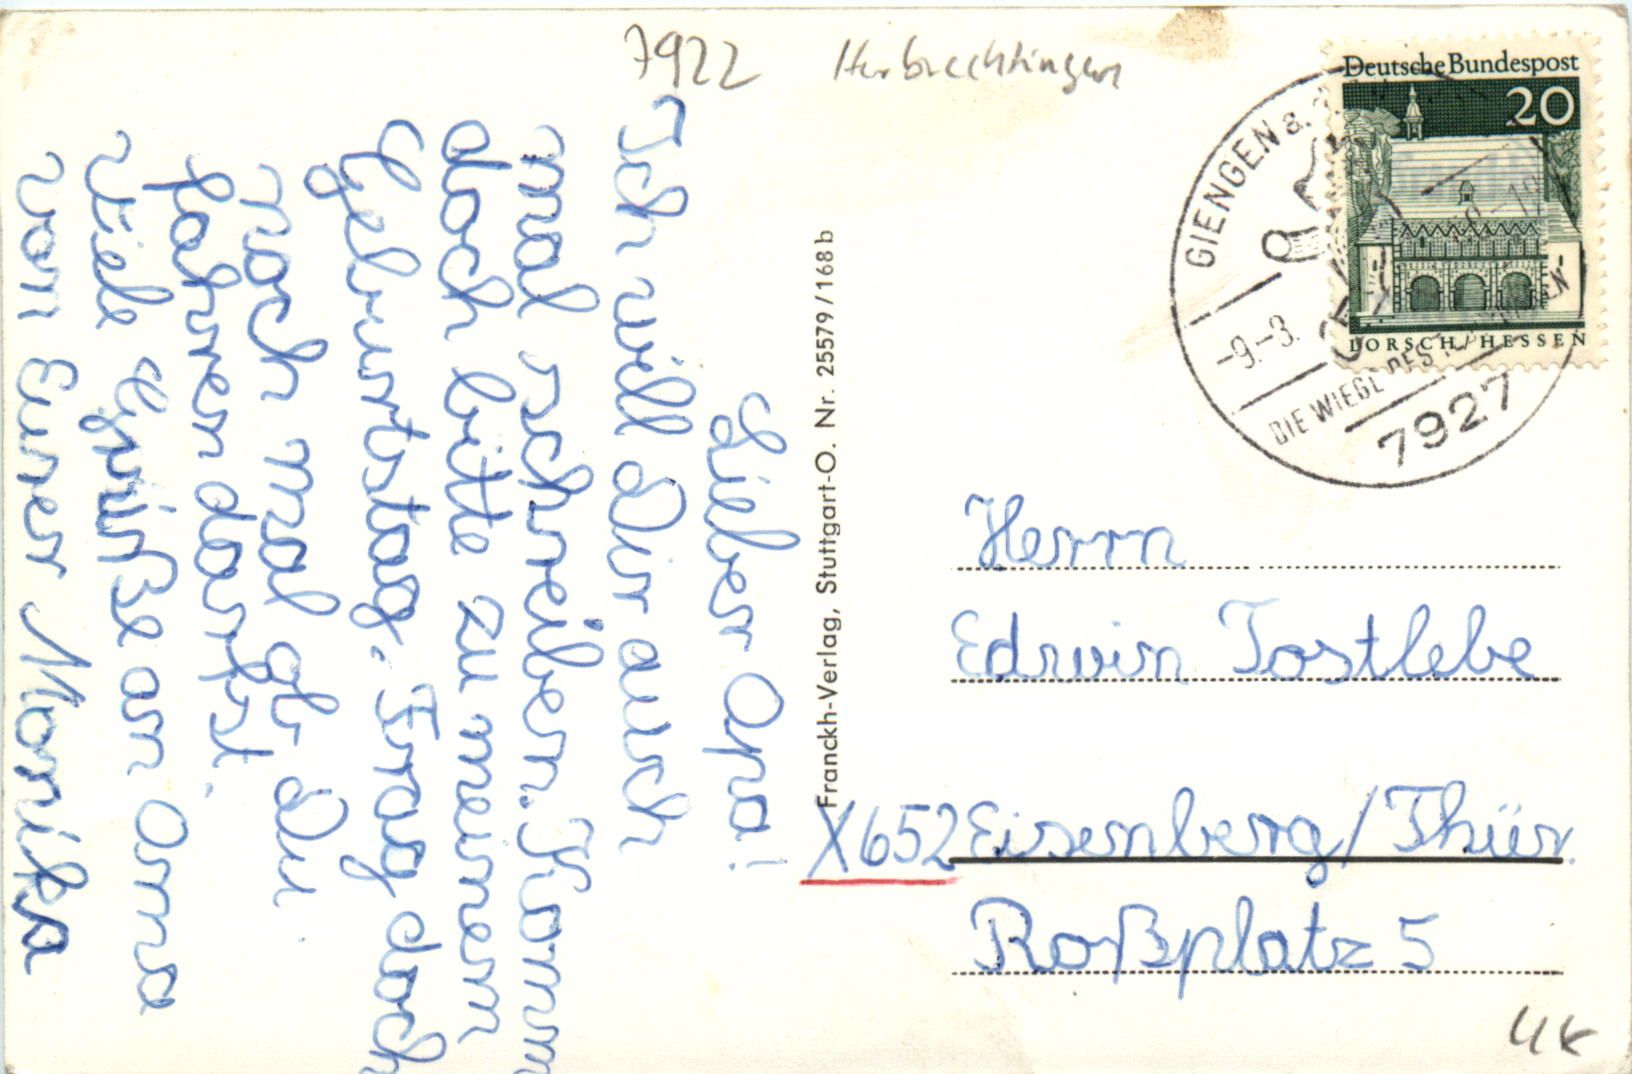 7922 Herbrechtingen
Lieber Opa!
Ich will Dir auch
mal schreiben. Komm
doch bitte zu meinem
Geburtstag. Frag doch
noch mal ob Du
fahren darfst.
Viele Grüße an Oma
von Eurer Monika
Franckh-Verlag, Stuttgart-O. Nr. 25579/168b
Deutsche Bundespost
20
LORSCH/HESSEN
GIENGEN a.
-9.-3.
DIE WIEGE DES
7927
Herrn
Edwin Tostlebe
X652 Eisenberg/Thür.
Roßplatz 5